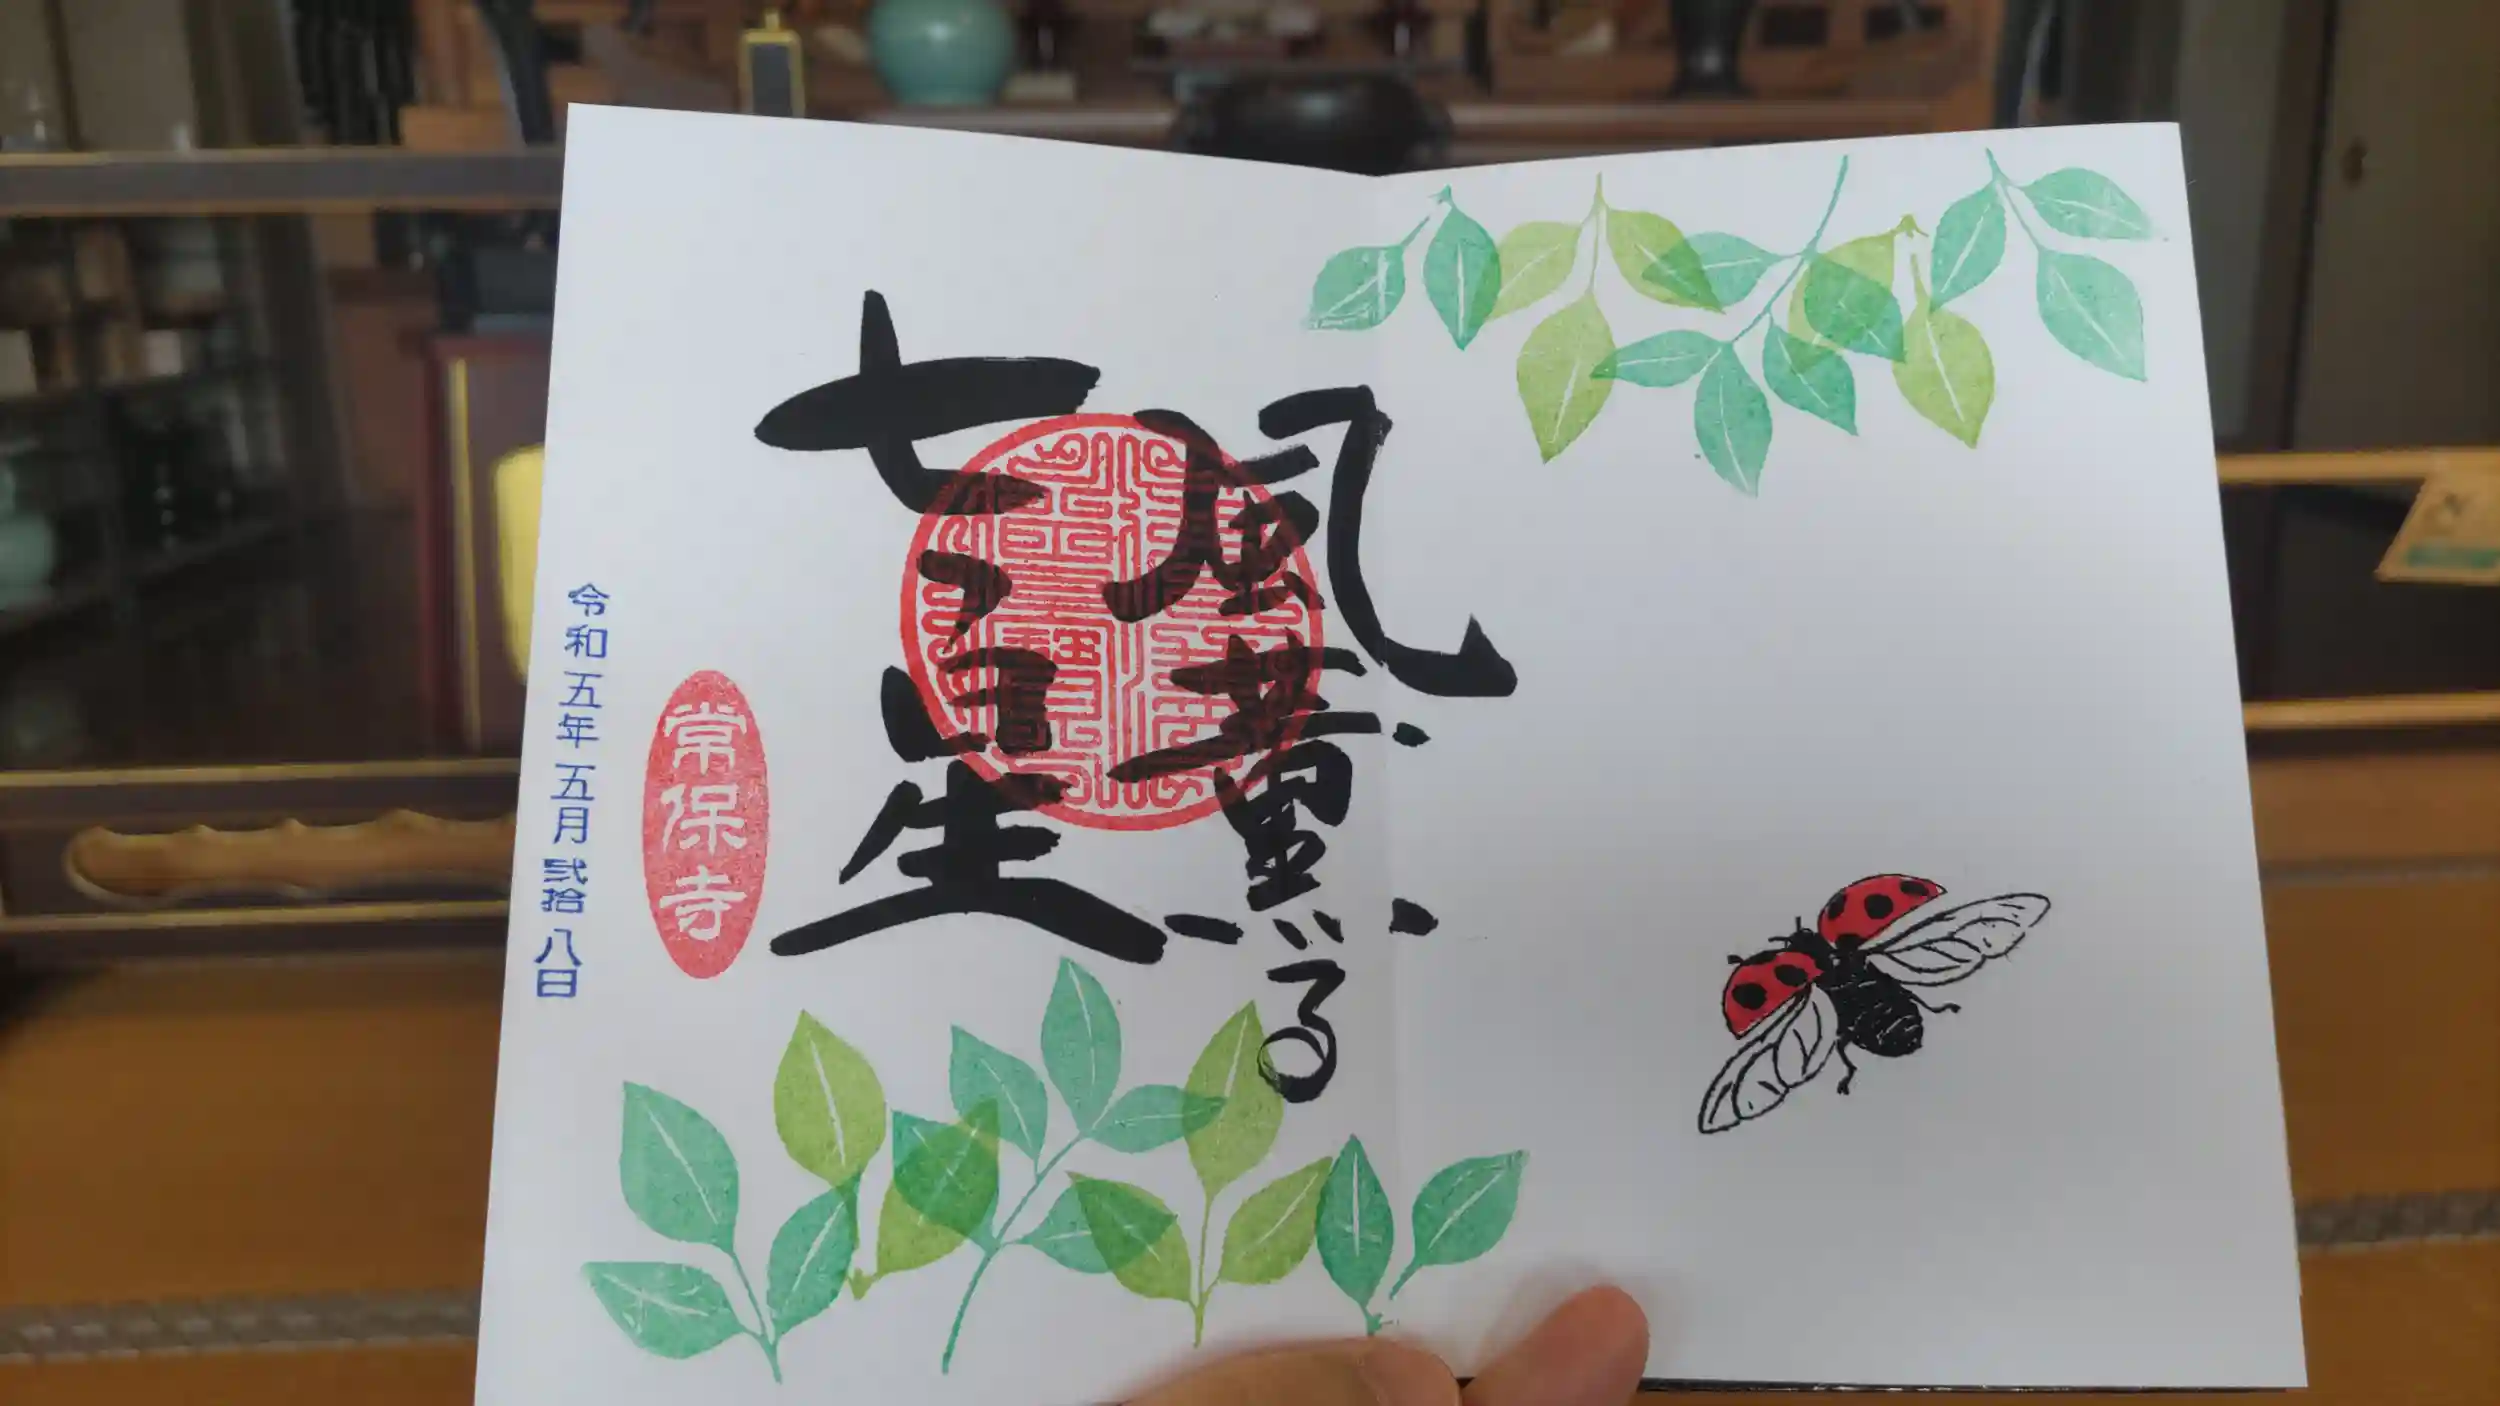 風薫る
七つ星
常保寺
令和五年五月弐拾八日